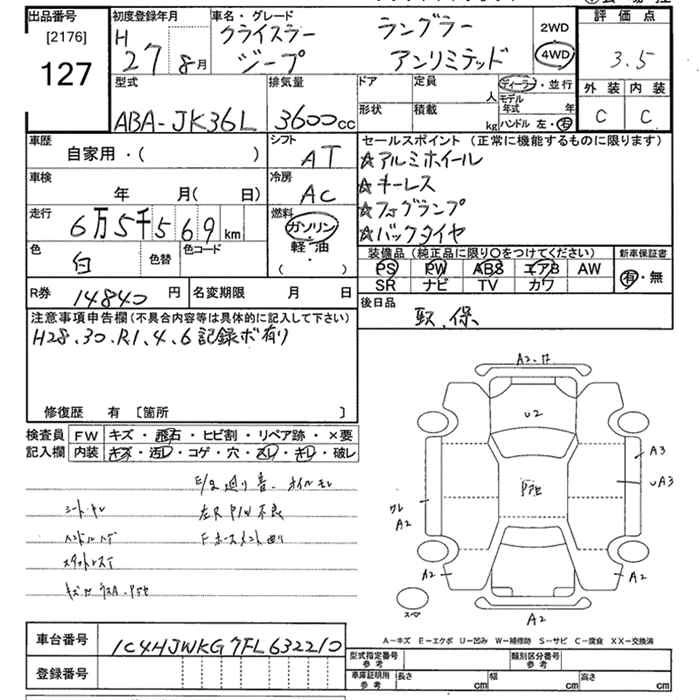 出品番号
[2176]
127
初度登録年月
H
27 8月
車名・グレード
クライスラー ラングラー
ジープ アンリミテッド
2WD
4WD
評価点
3.5
外装 内装
C C
型式
ABA-JK36L
排気量
3600cc
ドア 定員
人
形状 積載
kg
ディーラー・並行
モデル年式 年
ハンドル 左・右
車歴
自家用・( )
シフト
AT
車検
年 月( 日)
冷房
AC
走行
6万5千569km
燃料
ガソリン
軽・油
( )
色
白
色替
色コード
セールスポイント (正常に機能するものに限ります)
☆アルミホイール
☆キーレス
☆フォグランプ
☆バックタイヤ
装備品 (純正品に限り○をつけてください)
PS PW ABS エアB AW
SR ナビ TV カワ
新車保証書
有・無
R券 14840円
名変期限 月 日
後日品
取、保
注意事項申告欄(不具合内容等は具体的に記入して下さい)
H28.30.R1.4.6記録ボ有り
修復歴 有 [箇所 ]
検査員
記入欄
FW キズ・飛石・ヒビ割・リペア跡・×要
内装 キズ・汚レ・コゲ・穴・スレ・キレ・破レ
シート
ハンドル
左R P/W 不良
A2
U2
A3
UA3
A2
A2
A2
A2
スペア
A-キズ E-エクボ U-凹み W-補修跡 S-サビ C-腐食 XX-交換済
車台番号
1C4HJWKG7FL632210
登録番号
型式指定番号
参考
類別区分番号
参考
車庫証明用
参考
長さ cm
幅 cm
高さ cm